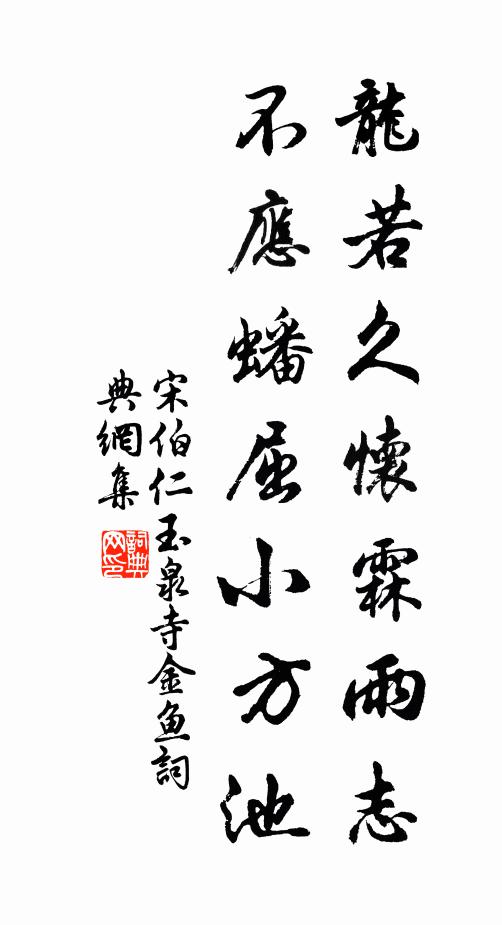 龍若久懷霖雨志
不應蟠屈小方池
宋伯仁玉泉寺金魚詞
典網集
詞典
网印